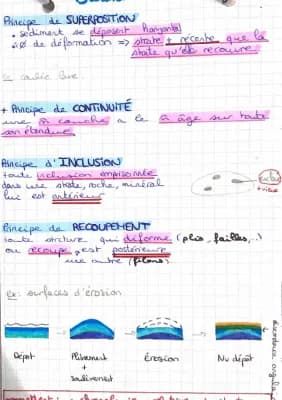 Principe de SUPERPOSITION
• sediment se déposent horizontal
de déformation => strate + récente que la
strate qu'elle recouvre
+ Principe de CONTINUITÉ
une m̂ couche a le m̂ âge sur toute
son étendue
Principe d'INCLUSION
toute inclusion emprisonnée
dans une strate, roche, minéral
lui est antérieur
+ vieux
Principe de RECOUPEMENT
toute structure qui déforme (plis, failles,...)
ou recoupe, est postérieure
une autre (filons)
ex: surfaces d'érosion
Dépôt
Plissement
+
soulèvement
Érosion
Nv dépôt
discordance angulaire